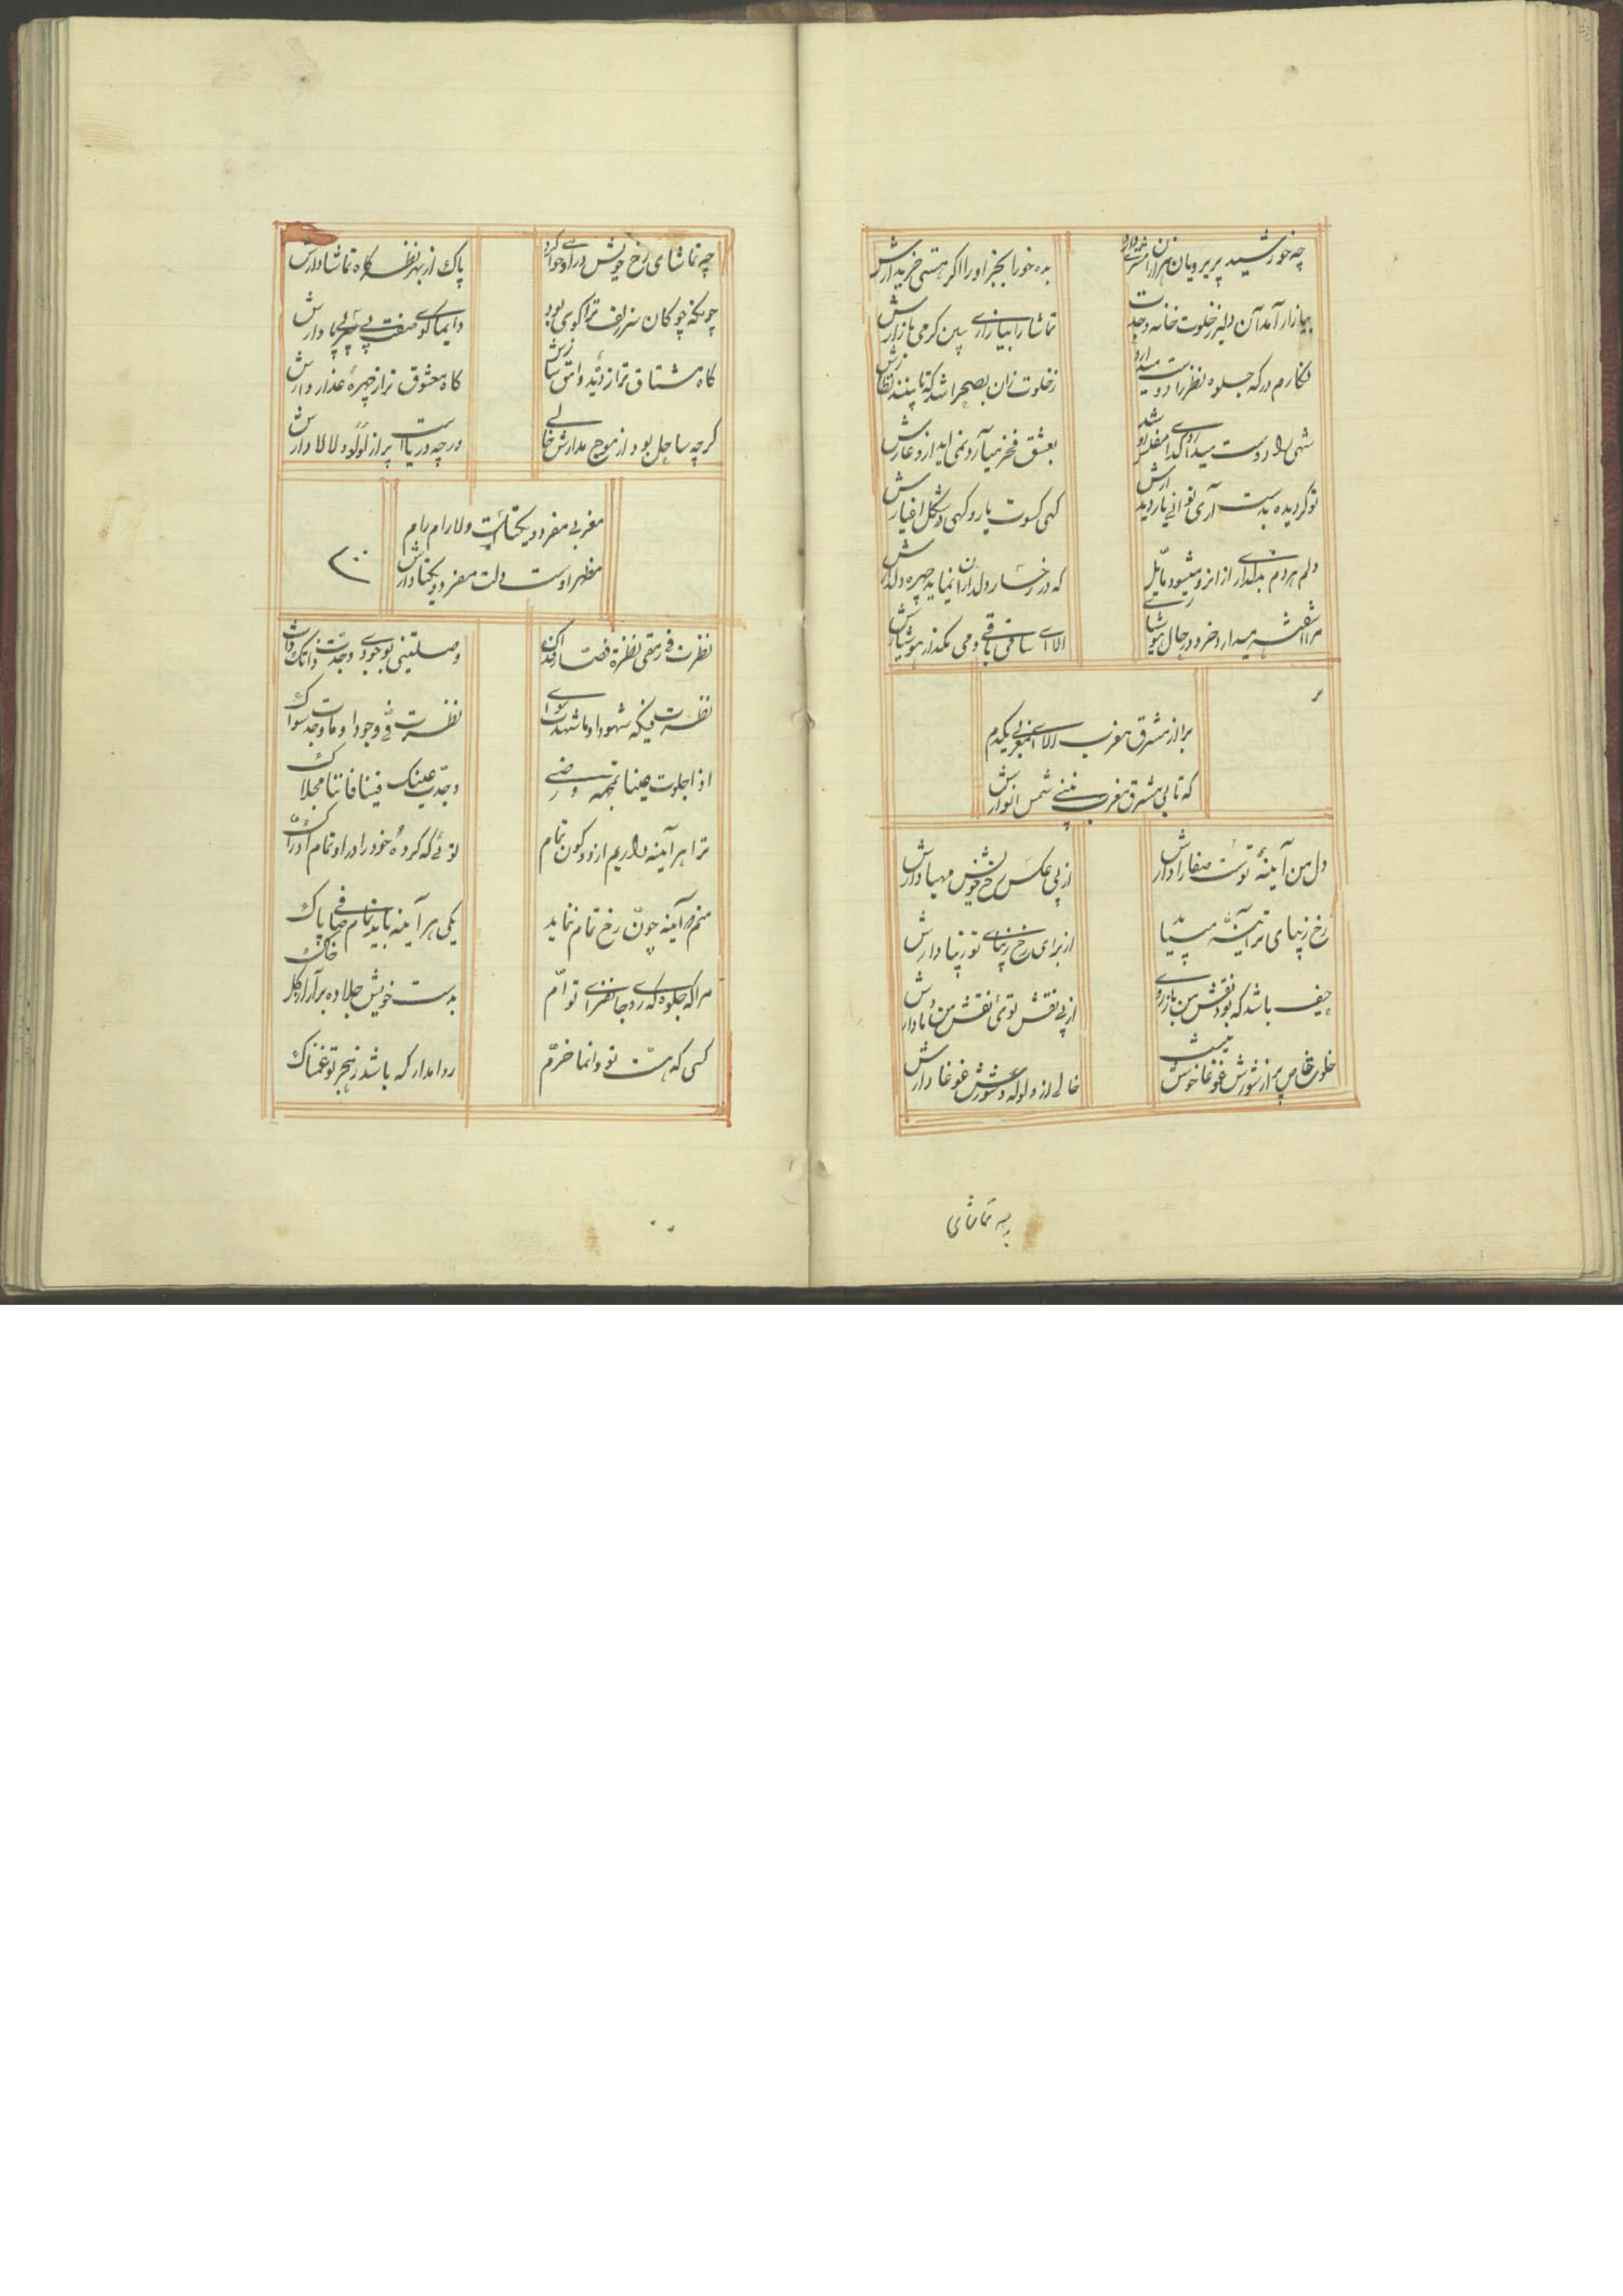 چه خورشید پریرویان هزاران مشتری دارد
بده خود را بخر او را اگر هستی خریدارش
ببازار آمد آن دلبر ز خلوت خانه وحدت
تماشا را بیا زاری ببین گرمی بازارش
نگارم در که جلوه نظر را دوست میدارد
ز خلوت زان بصحرا شد که تا بیند نظارش
شهی را دوست میدارد کدا مفلس
بعشق فخر میآرد نمی آید ازو عارش
تو گر دیده بدست آری توانی یار دیدارش
گهی کسوت یار و گهی در شکل اغیارش
دلم هردم بدلداری از انرو میشود مایل
که در رخسار دلداران نماید چهره دلدارش
مرا میدارد خرد در حال هوشیاری
الا ای ساقی باقی و می مگذار هوشیارش
برآ از مشرق مغرب الا ای مغربی یکدم
که تا بی مشرق و مغرب ببینی شمس انوارش
دل من آینهٔ تست مصفا دارش
از پی عکس رخ خویش مهیا دارش
رخ زیبای ترا آینه میباید
از برای رخ زیبای تو زیبا دارش
حیف باشد که بود نقش من بازروی
از پی نقش توئی نقش من و ما دارش
خلوت خاص پر از شورش غوغا خوش نیست
خالی از ولوله و شورش غوغا دارش
چه تماشای
چه تماشای رخ خویش در او خواهی کرد
پاک از بهر نظرگاه تماشا دارش
چونکه چوگان سر زلف ترا گوی بود
دایما گوی صفت بی سر و بی پا دارش
گاه مشتاق تر از دیده وامق سازش
گاه معشوق تر از چهرهٔ عذرا دارش
گرچه ساحل بود از موج مدارش خالی
ورچه دریاست پر از لؤلؤ لالا دارش
مغربی مفرد و یکتاست دلارام رام
مظهر اوست دلت مفرد و یکتا دارش
نظرت فی رمقی نظرة فصار فداک
وصلتنی بوجودی وجدت ذاتک ذاک
نظرت فیک شهودا و ما شهدت سواک
نظرت فی وجودا و ما وجد سواک
اذا جلوت علینا
وجدت عینک فینا فاننا مجلاک
ترا هر آینه داریم از دو کون تمام
توئی که کردهٔ خود را در او تمام ادراک
منم آینه چون رخ تمام نماید
یکی هر آینه باید تمام صافی پاک
مرا که جلوه گه روی جانفزای توام
بدست خویش جلا ده برآر از گل خاک
کسی که هست تو دائما خرم
روا مدار که باشد ز هجر تو غمناک